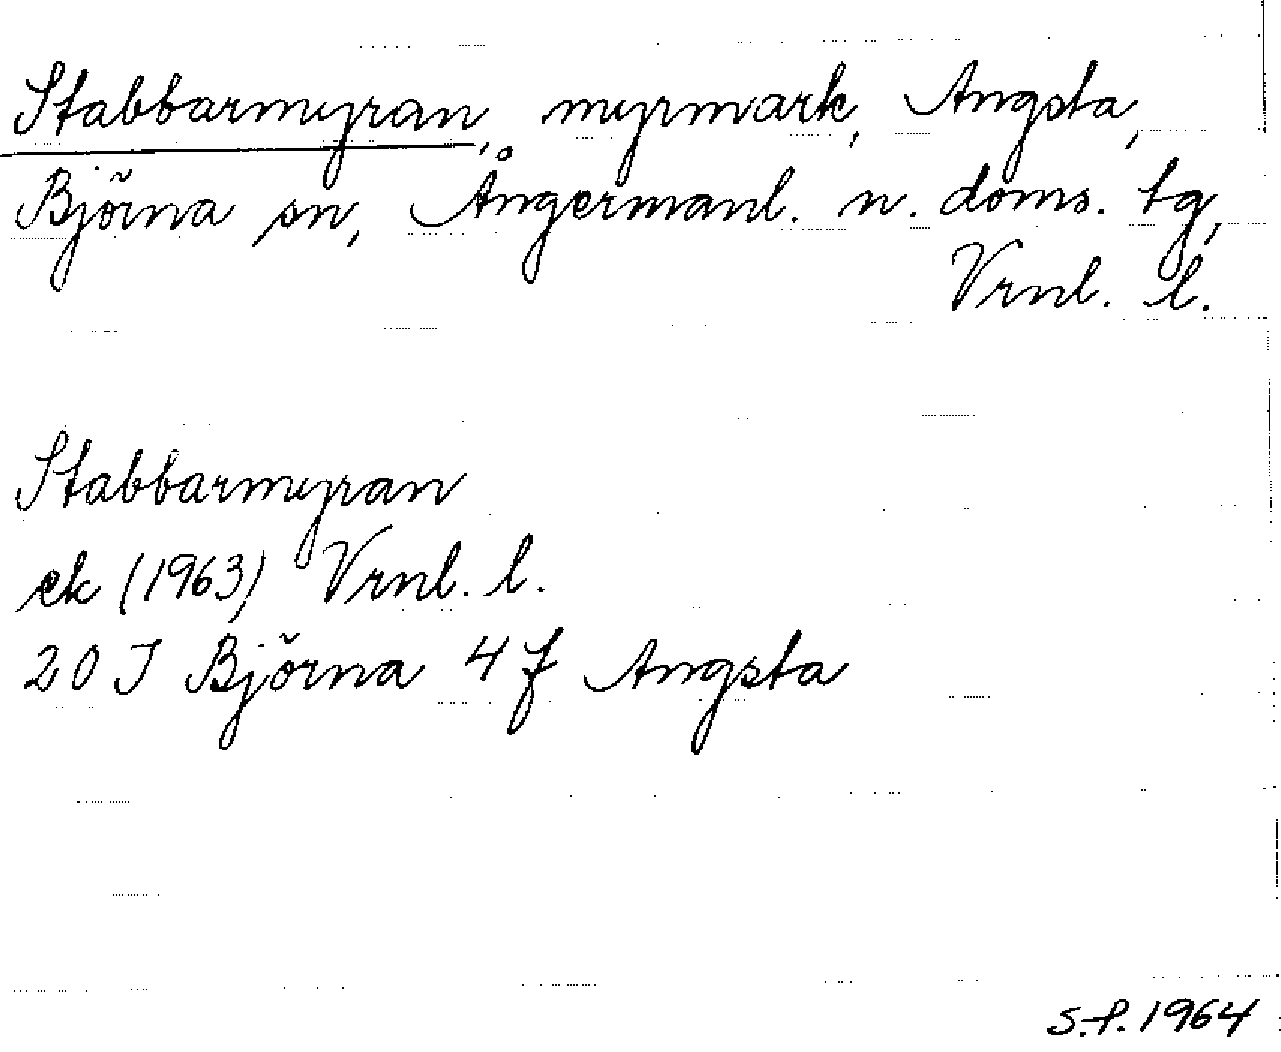 Stabbarmyran, myrmark, Angsta,
Björna sn, Ångermanl. n. doms. tg,
Vrnl. l.
Stabbarmyran
ek (1963) Vrnl. l.
20 J Björna 4 f Angsta
S.P. 1964